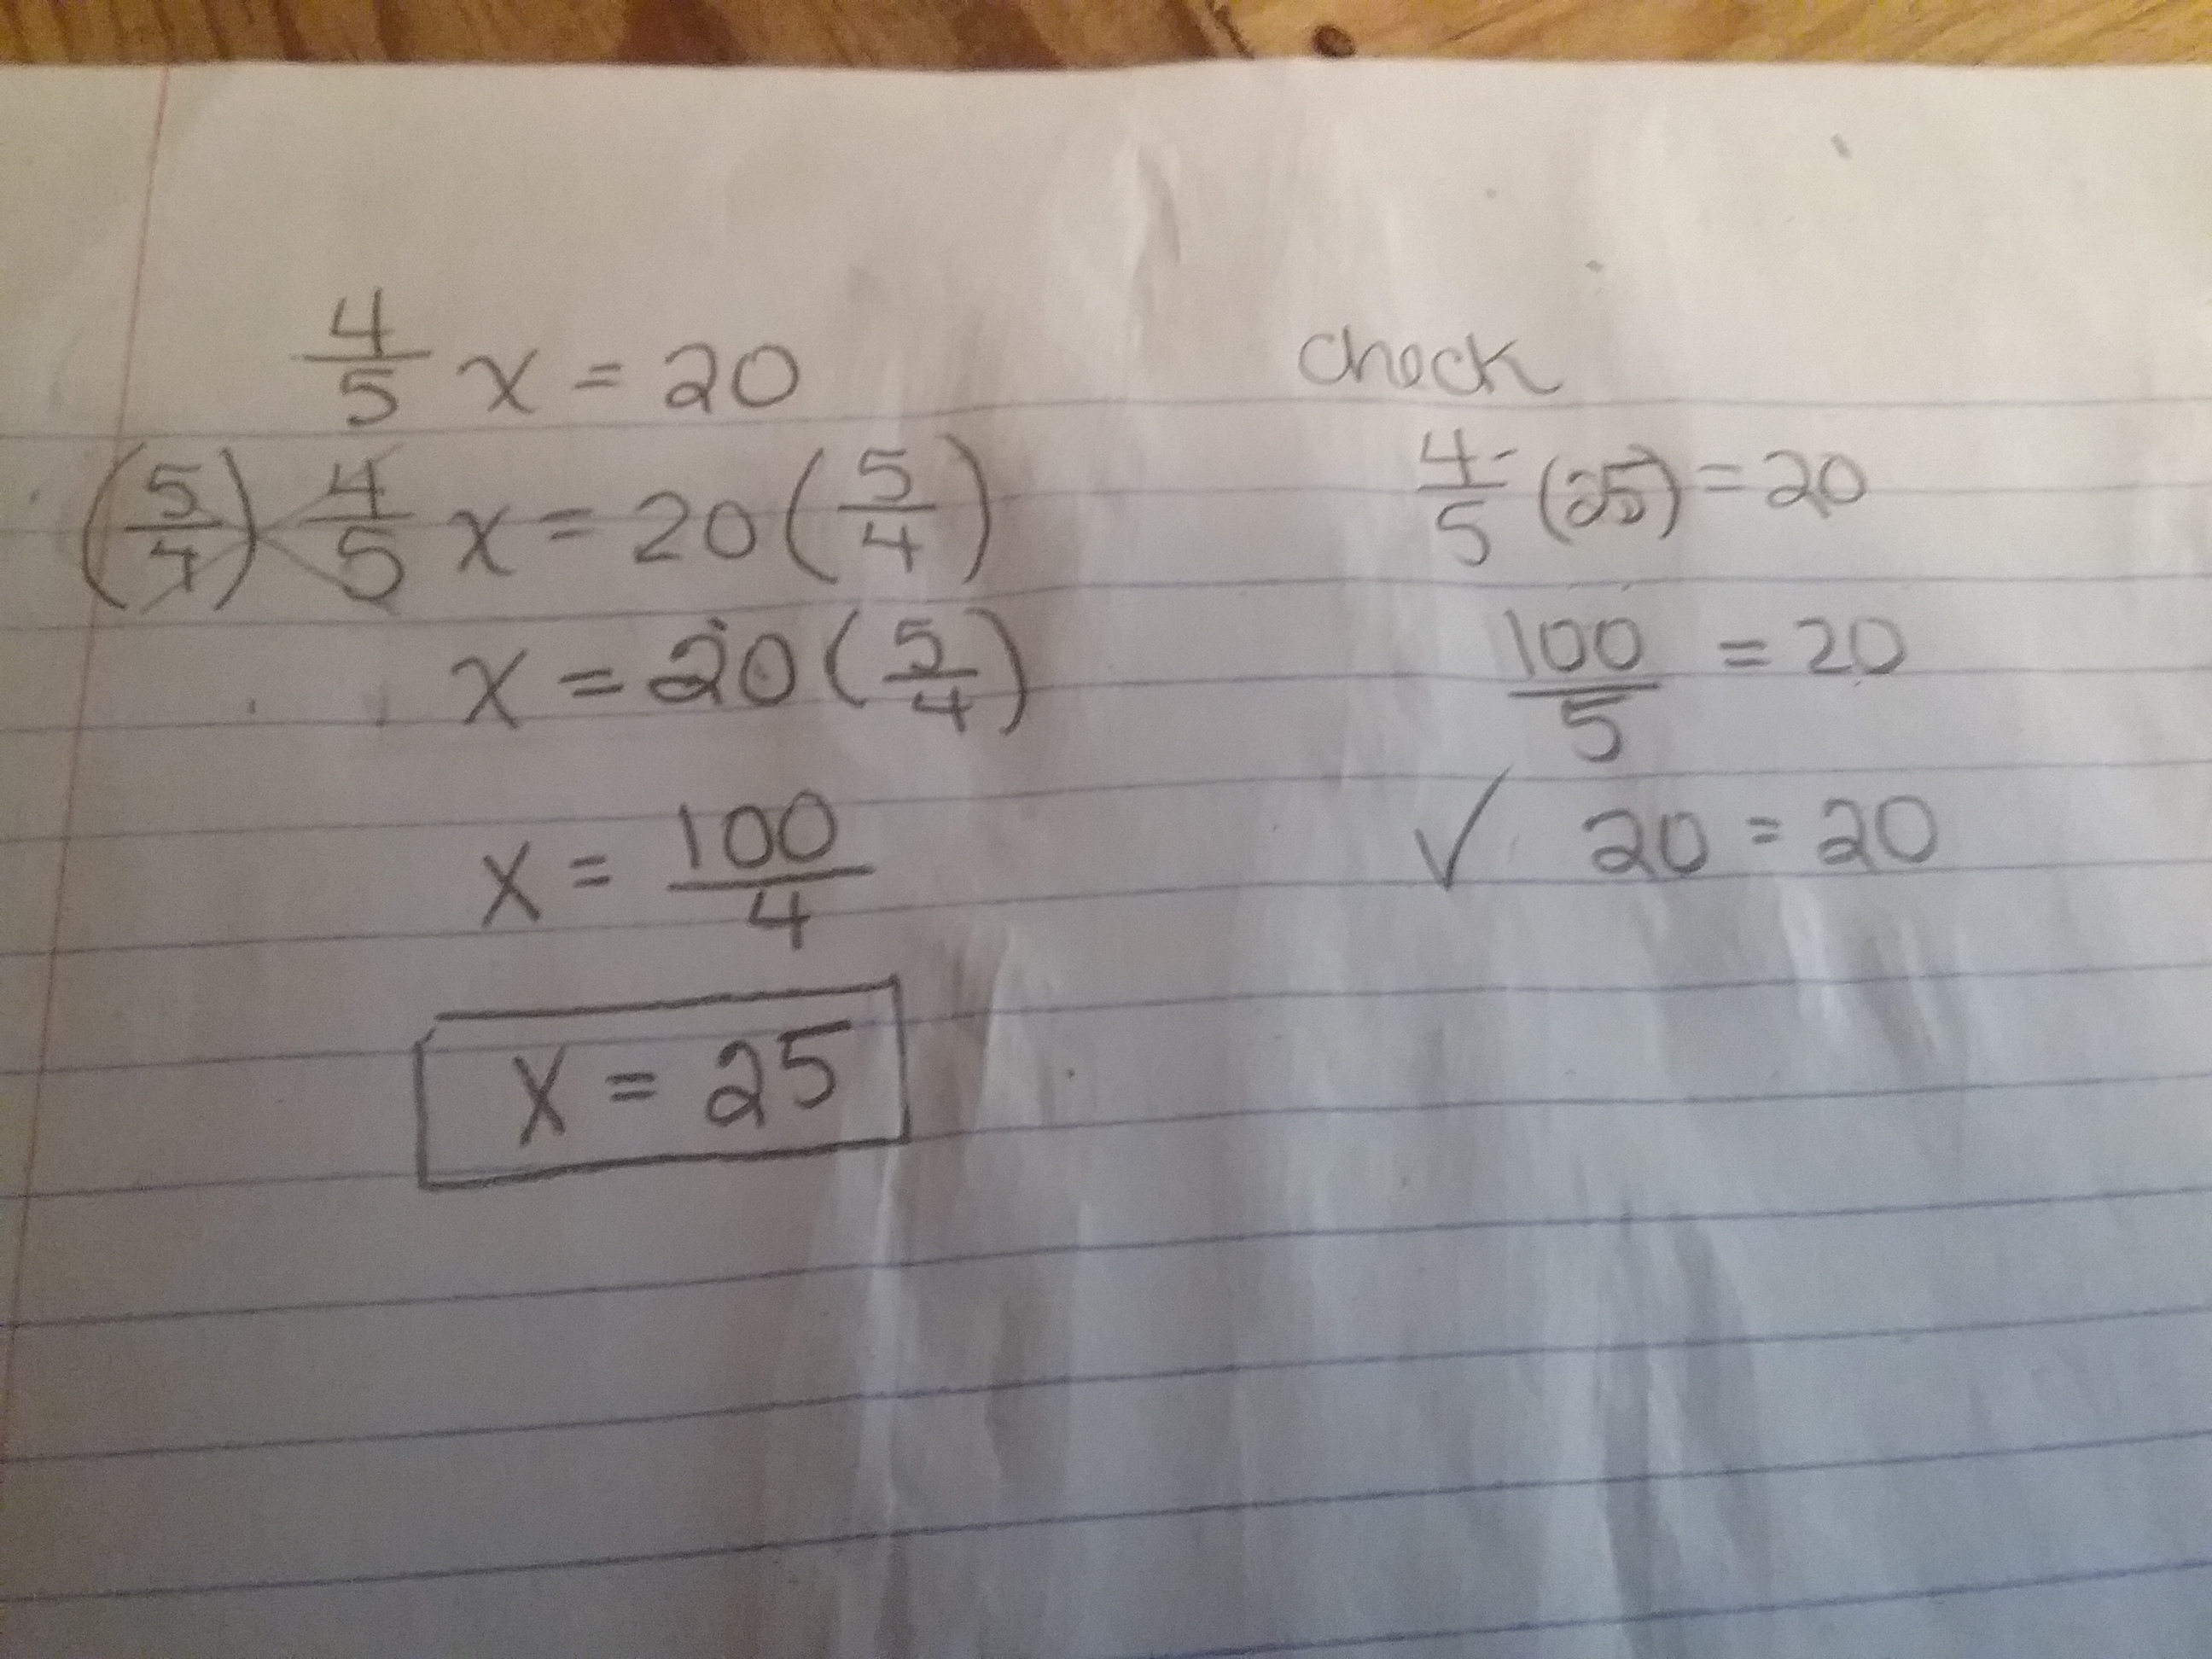 4/5 x = 20
(5/4) 4/5 x = 20 (5/4)
x = 20 (5/4)
x = 100/4
x = 25
check
4/5 (25) = 20
100/5 = 20
✓ 20 = 20